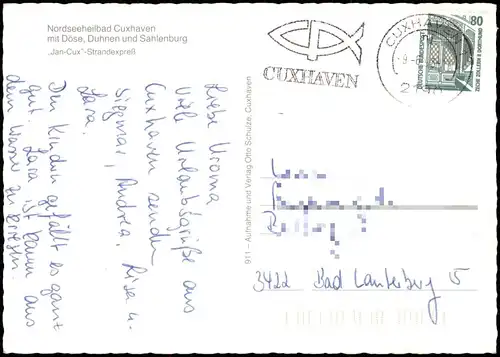 Nordseeheilbad Cuxhaven
mit Döse, Duhnen und Sahlenburg
„Jan-Cux"-Strandexpreß
Liebe Uroma
Viele Urlaubsgrüße aus
Cuxhaven senden
Siegmar, Andrea, Lisa u.
Lara.
Den Kindern gefällt es ganz
gut. Lara ist kaum aus
dem Wasser zu kriegen.
911 – Aufnahme und Verlag Otto Schulze, Cuxhaven
CUXHAVEN
CUXHAVEN
80
DEUTSCHE BUNDESPOST
3422 Bad Lauterberg 5